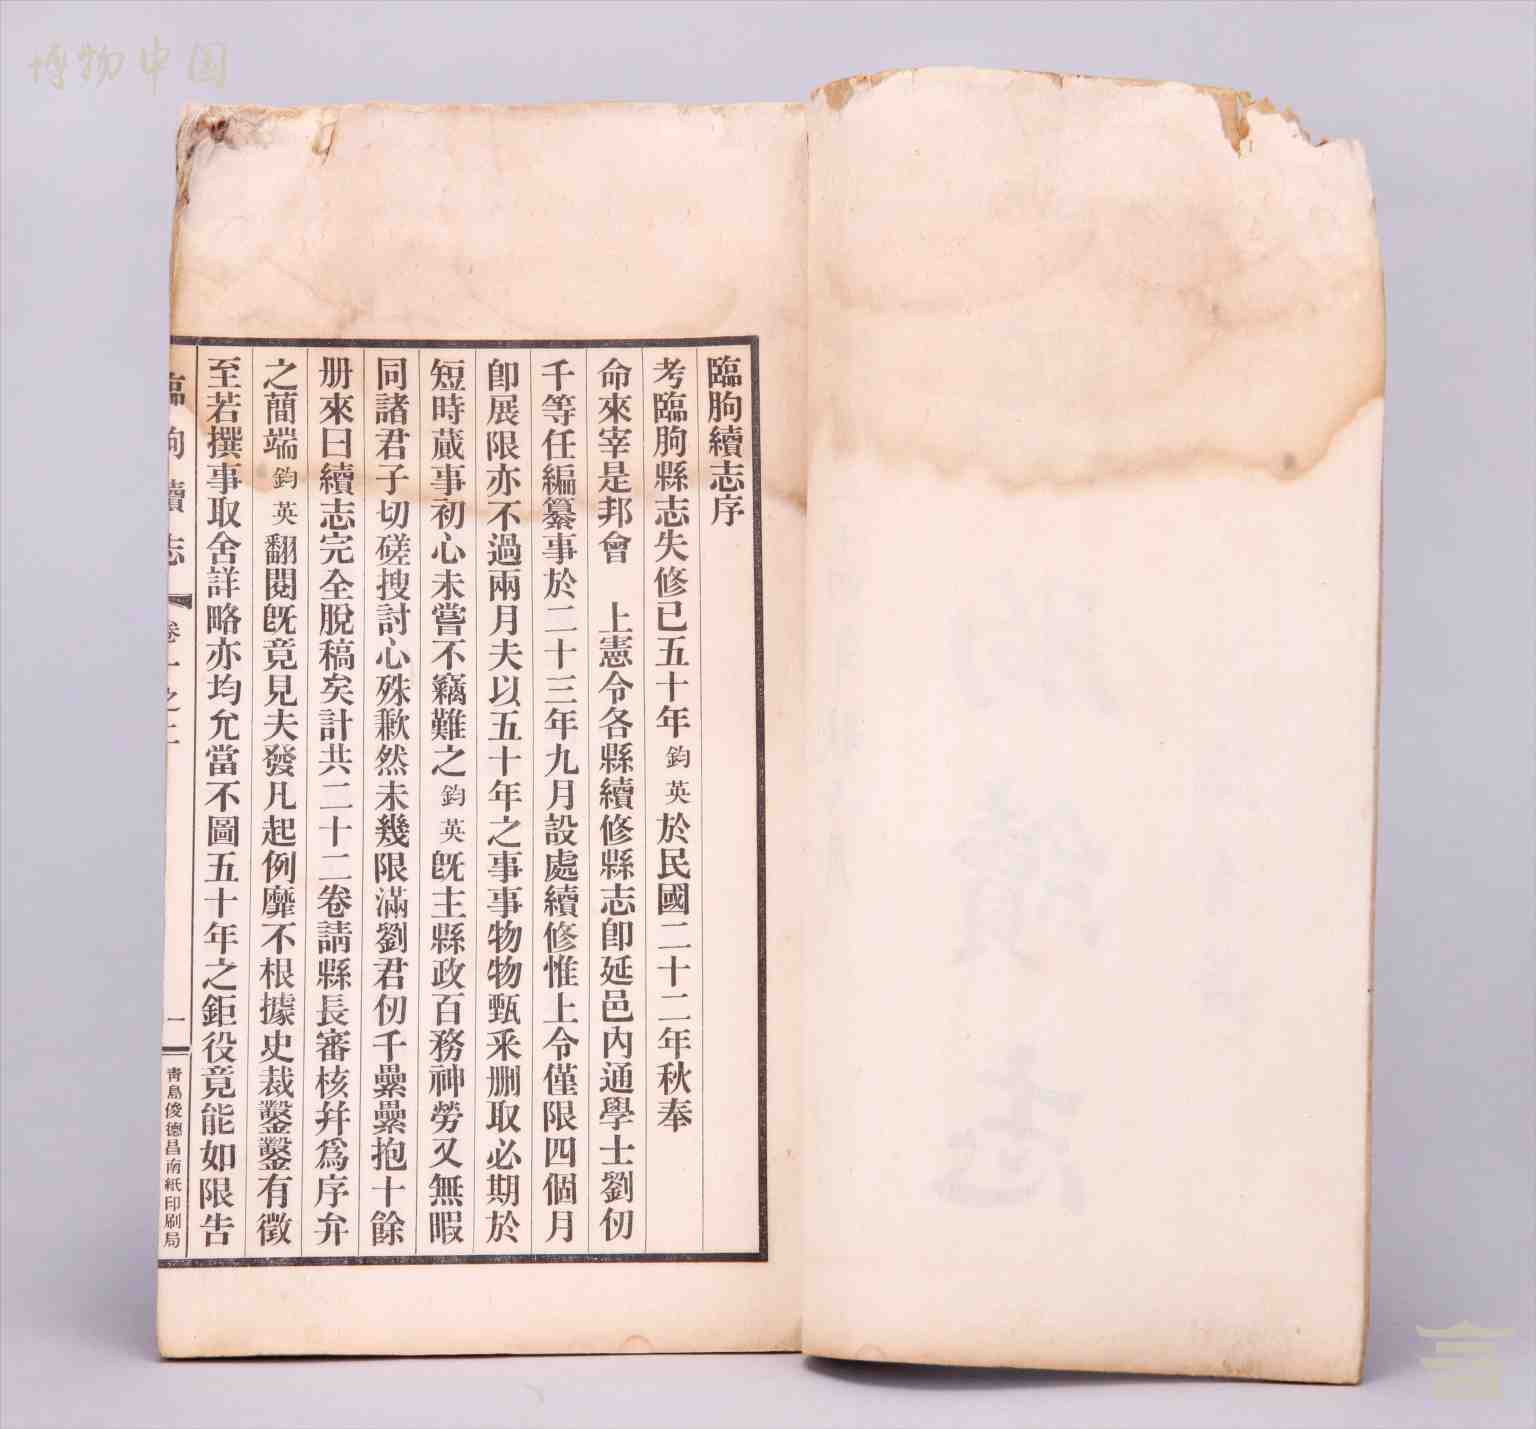 博物中国
臨朐續志序
考臨朐縣志失修已五十年鈞英於民國二十二年秋奉
命來宰是邦會　上憲令各縣續修縣志卽延邑內通學士劉仞
千等任編纂事於二十三年九月設處續修惟上令僅限四個月
卽展限亦不過兩月夫以五十年之事事物物甄采刪取必期於
短時蕆事初心未嘗不竊難之鈞英旣主縣政百務神勞又無暇
同諸君子切磋搜討心殊歉然未幾限滿劉君仞千纍纍抱十餘
册來曰續志完全脫稿矣計共二十二卷請縣長審核幷爲序弁
之簡端鈞英翻閱旣竟見夫發凡起例靡不根據史裁鑿鑿有徵
至若撰事取舍詳略亦均允當不圖五十年之鉅役竟能如限告
臨朐續志
一
靑島俊德昌南紙印刷局